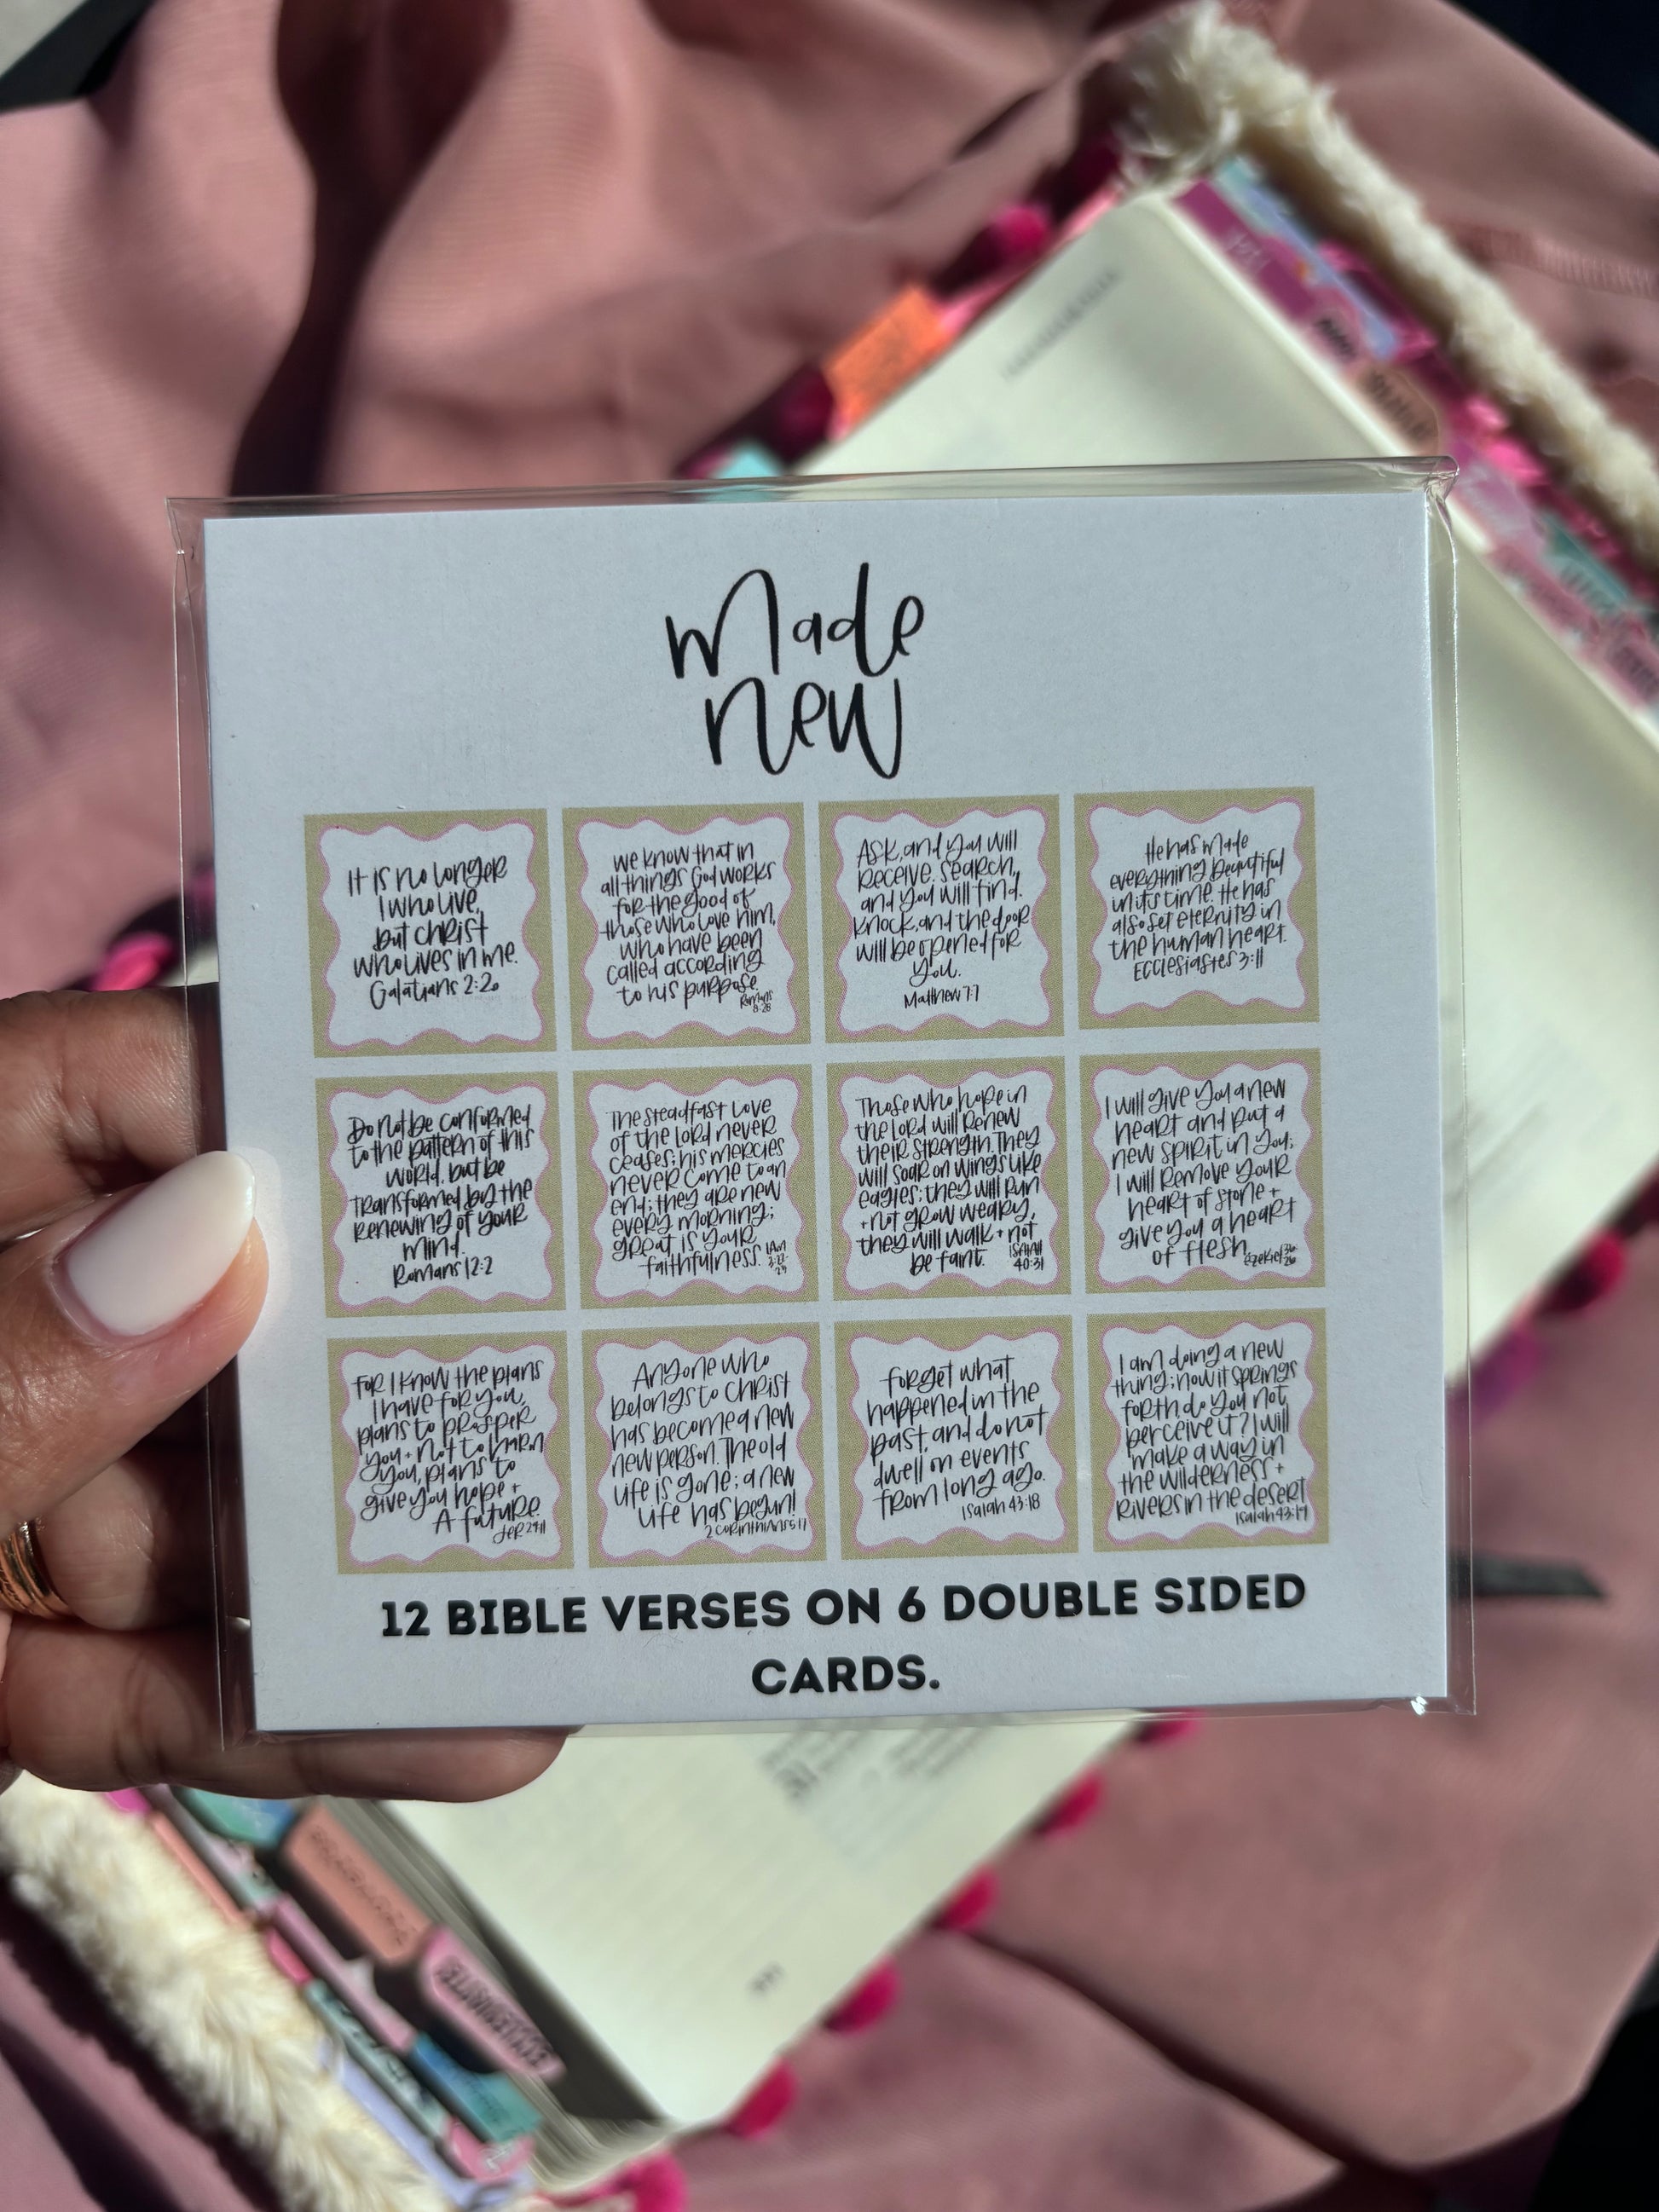 made
new
It is no longer
I who live,
but Christ
who lives in me.
Galatians 2:20
we know that in
all things God works
for the good of
those who love him,
who have been
called according
to his purpose.
Romans
8:28
Ask, and you will
receive. Search,
and you will find.
Knock, and the door
will be opened for
you.
Matthew 7:7
He has made
everything beautiful
in its time. He has
also set eternity in
the human heart.
Ecclesiastes 3:11
Do not be conformed
to the pattern of this
world, but be
transformed by the
renewing of your
mind.
Romans 12:2
The steadfast love
of the Lord never
ceases; his mercies
never come to an
end; they are new
every morning;
great is your
faithfulness.
Lam
3:22-
23
Those who hope in
the Lord will renew
their strength. They
will soar on wings like
eagles; they will run
+ not grow weary,
they will walk + not
be faint.
Isaiah
40:31
I will give you a new
heart and put a
new spirit in you;
I will remove your
heart of stone +
give you a heart
of flesh.
Ezekiel 36
26
For I know the plans
I have for you,
plans to prosper
you + not to harm
you, plans to
give you hope +
A future.
Jer 29:11
Anyone who
belongs to Christ
has become a new
new person. The old
life is gone; a new
life has begun!
2 Corinthians 5:17
Forget what
happened in the
past, and do not
dwell on events
from long ago.
Isaiah 43:18
I am doing a new
thing; now it springs
forth do you not
perceive it? I will
make a way in
the wilderness +
Rivers in the desert
Isaiah 43:19
12 BIBLE VERSES ON 6 DOUBLE SIDED
CARDS.